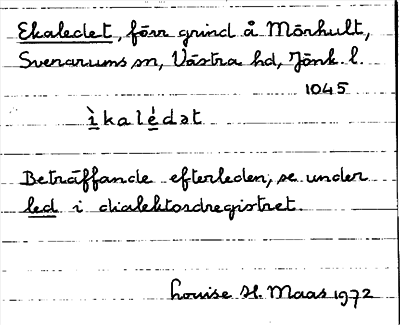 Ekaledet, förr grind å Mörhult,
Svenarums sn, Västra hd, Jönk. l.
1045
ìkalédət
Beträffande efterleden, se under
led i dialektordregistret.
Louise H. Maas 1972